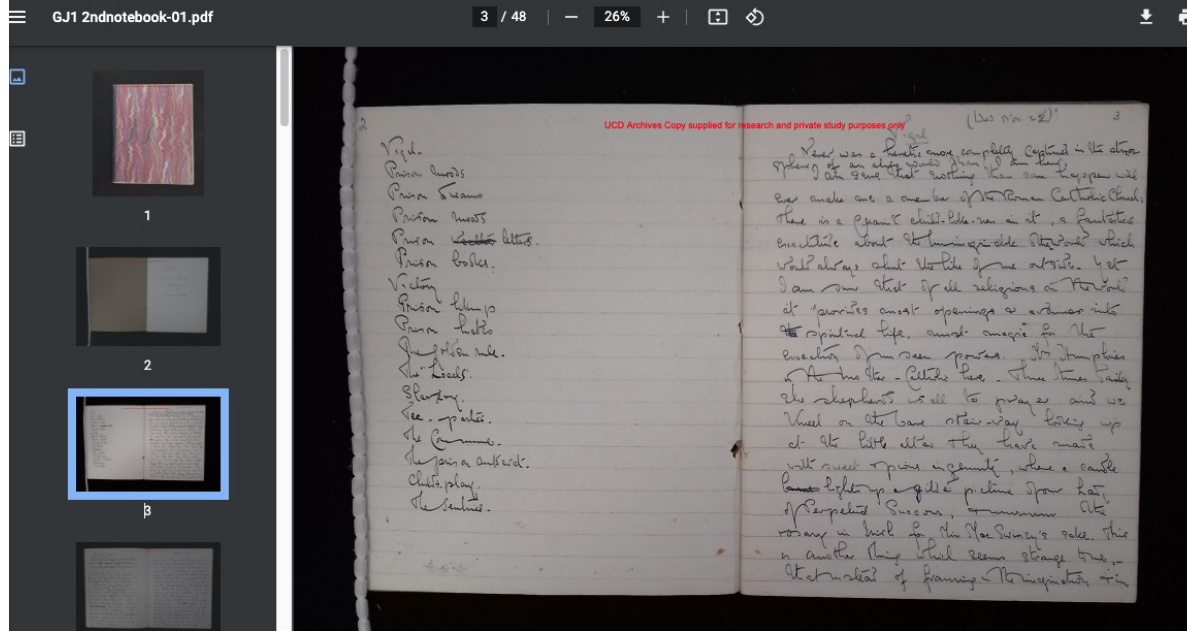 GJ1 2ndnotebook-01.pdf
3 / 48
26%
1
2
3
UCD Archives Copy supplied for research and private study purposes only
2
Vigil.
Prison moods
Prison Dreams
Prison
Prison letters.
Prison books.
Victory
Prison
Prison
The golden rule.
The "Locals".
Tea-parties.
The Commune.
The prison outside.
Child's play.
The Sentries.
3
Vigil
Never was a heretic more completely captured in the atmo
sphere of an alien world than I am here,
I am sure that nothing that can happen will
ever make me a member of the Roman Catholic Church:
there is a quaint child-like-ness in it, a fantastic
exactitude about the unimaginable otherworld which
would always shut the like of me outside. Yet
I am sure that of all religions in the world
it provides most openings & avenues into
spiritual life, most magic for the
evocation of unseen powers. Mrs Humphries
is the Catholic here. Three times daily
she shepherds us all to prayer and we
kneel on the bare stair-way looking up
at the little altar they have made
with sweet & pious ingenuity, where a candle
lights up a gilded picture of our Lady
of Perpetual Succour, the
rosary in Irish for Miss MacSwiney's sake. This
is another thing which seems strange to me,—
that instead of framing in the imagination